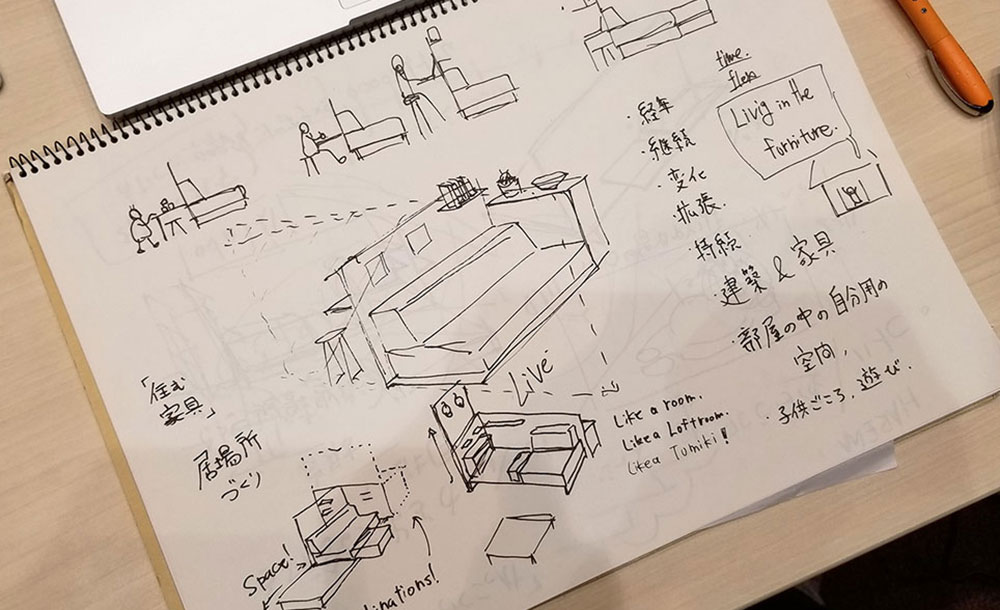 time.
flex
Livig in the
furniture.
・経年
・継続
・変化
・拡張.
・持続
・建築 & 家具
・部屋の中の自分用の
空間,
・子供ごころ,遊び.
Live
Like a room.
Like a Loftroom.
Like a Tumiki!
家具」
居場所
づくり
Space!